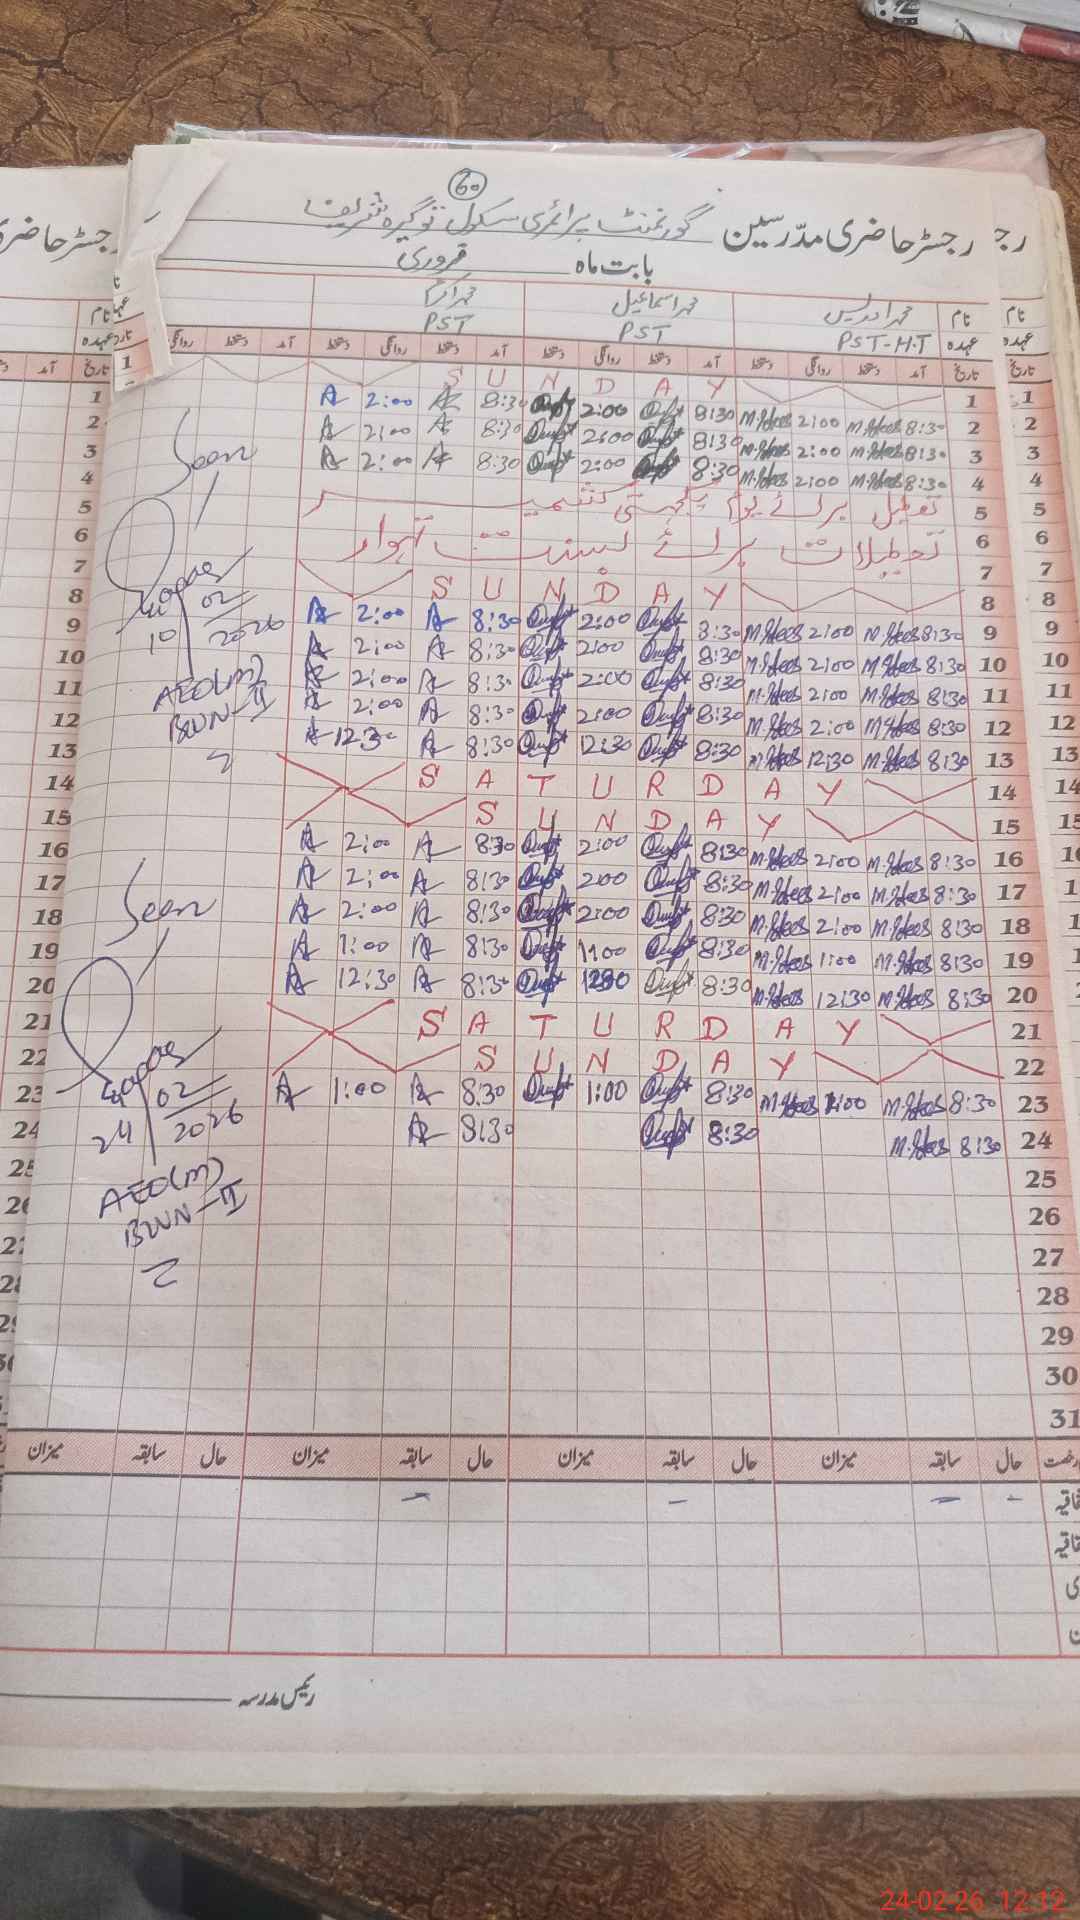 60
رجسٹر حاضری مدرسین گورنمنٹ پرائمری سکول توگیرہ شریف
بابت ماہ فروری
نام محمد ادریس محمد اسماعیل محمد اکرم
عہدہ PST-H.T PST PST
تاریخ آمد دستخط روانگی دستخط آمد دستخط روانگی دستخط آمد دستخط روانگی دستخط آمد دستخط روانگی
1 SUNDAY
2 8:30 2:00 8:30 2:00 8:30 2:00
3 8:30 2:00 8:30 2:00 8:30 2:00
4 8:30 2:00 8:30 2:00 8:30 2:00
5 تعطیل برائے یوم یکجہتی کشمیر
6 تعطیلات برائے بسنت تہوار
7
8 SUNDAY
9 8:30 2:00 8:30 2:00 8:30 2:00
10 8:30 2:00 8:30 2:00 8:30 2:00
11 8:30 2:00 8:30 2:00 8:30 2:00
12 8:30 2:00 8:30 2:00 8:30 2:00
13 8:30 12:30 8:30 12:30 8:30 12:30
14 SATURDAY
15 SUNDAY
16 8:30 2:00 8:30 2:00 8:30 2:00
17 8:30 2:00 8:30 2:00 8:30 2:00
18 8:30 2:00 8:30 2:00 8:30 2:00
19 8:30 1:00 8:30 1:00 8:30 1:00
20 8:30 12:30 8:30 1230 8:30 12:30
21 SATURDAY
22 SUNDAY
23 8:30 1:00 8:30 1:00 8:30 1:00
24 8:30 8:30 8:30
25
26
27
28
29
30
31
Seen
10/02/2026
AEO(M)
BWN-II
Seen
24/02/2026
AEO(M)
BWN-II
حال سابقہ میزان حال سابقہ میزان حال سابقہ میزان حال سابقہ میزان
رئیس مدرسہ
24-02-26 12:12